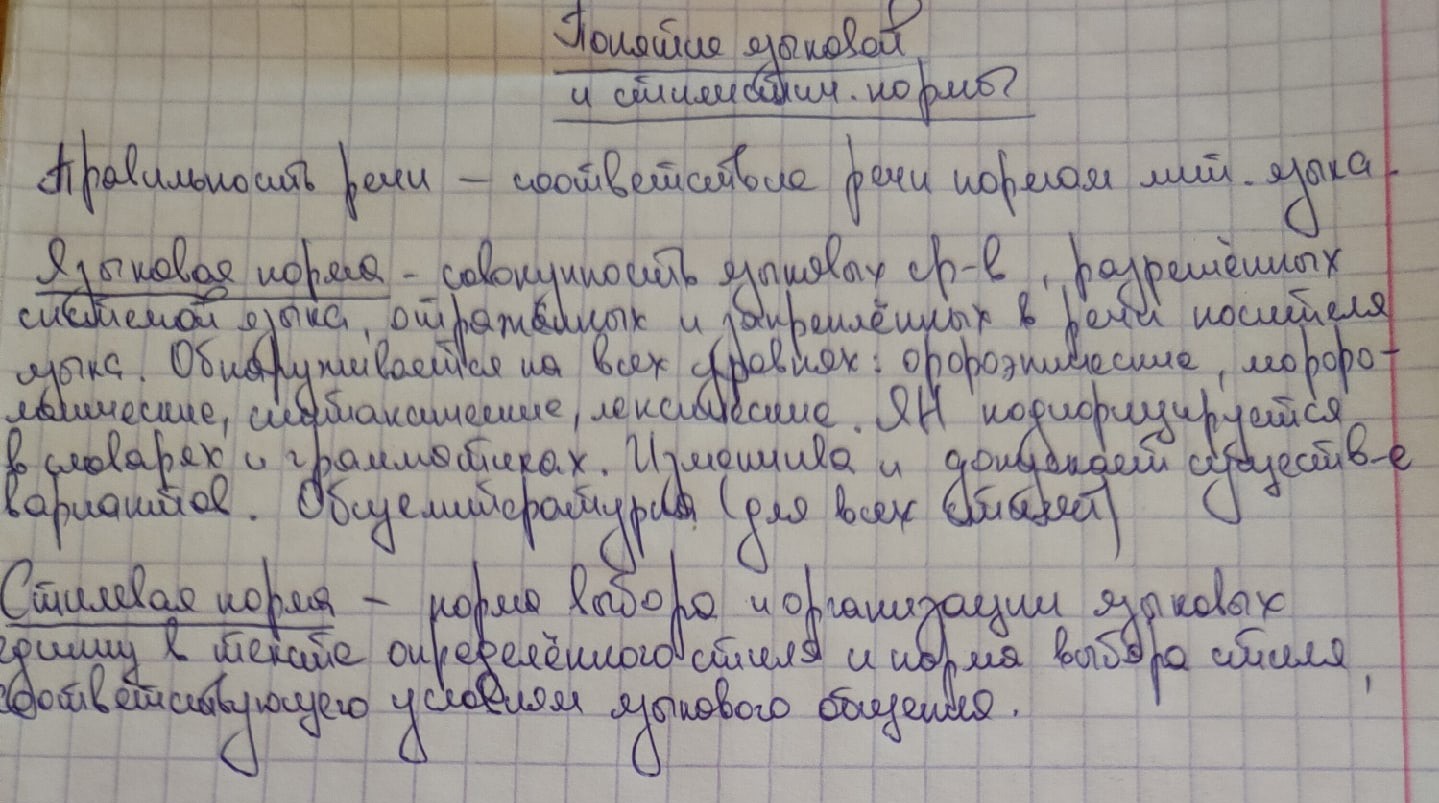 Понятие языковой
и стилистич. нормы
Правильность речи – соответствие речи нормам лит. языка.
Языковая норма – совокупность языковых ср-в, разрешённых
системой языка, отражённых и закреплённых в речи носителя
языка. Обнаруживается на всех уровнях: орфоэпические, морфо-
логические, синтаксические, лексические. ЯН кодифицируется
в словарях и грамматиках. Изменчива и допускает существ-е
вариантов. Общелитературна (для всех стилей)
Стилевая норма – норма выбора и организации языковых
единиц в тексте определённого стиля и норма выбора стиля,
соответствующего условиям языкового общения.